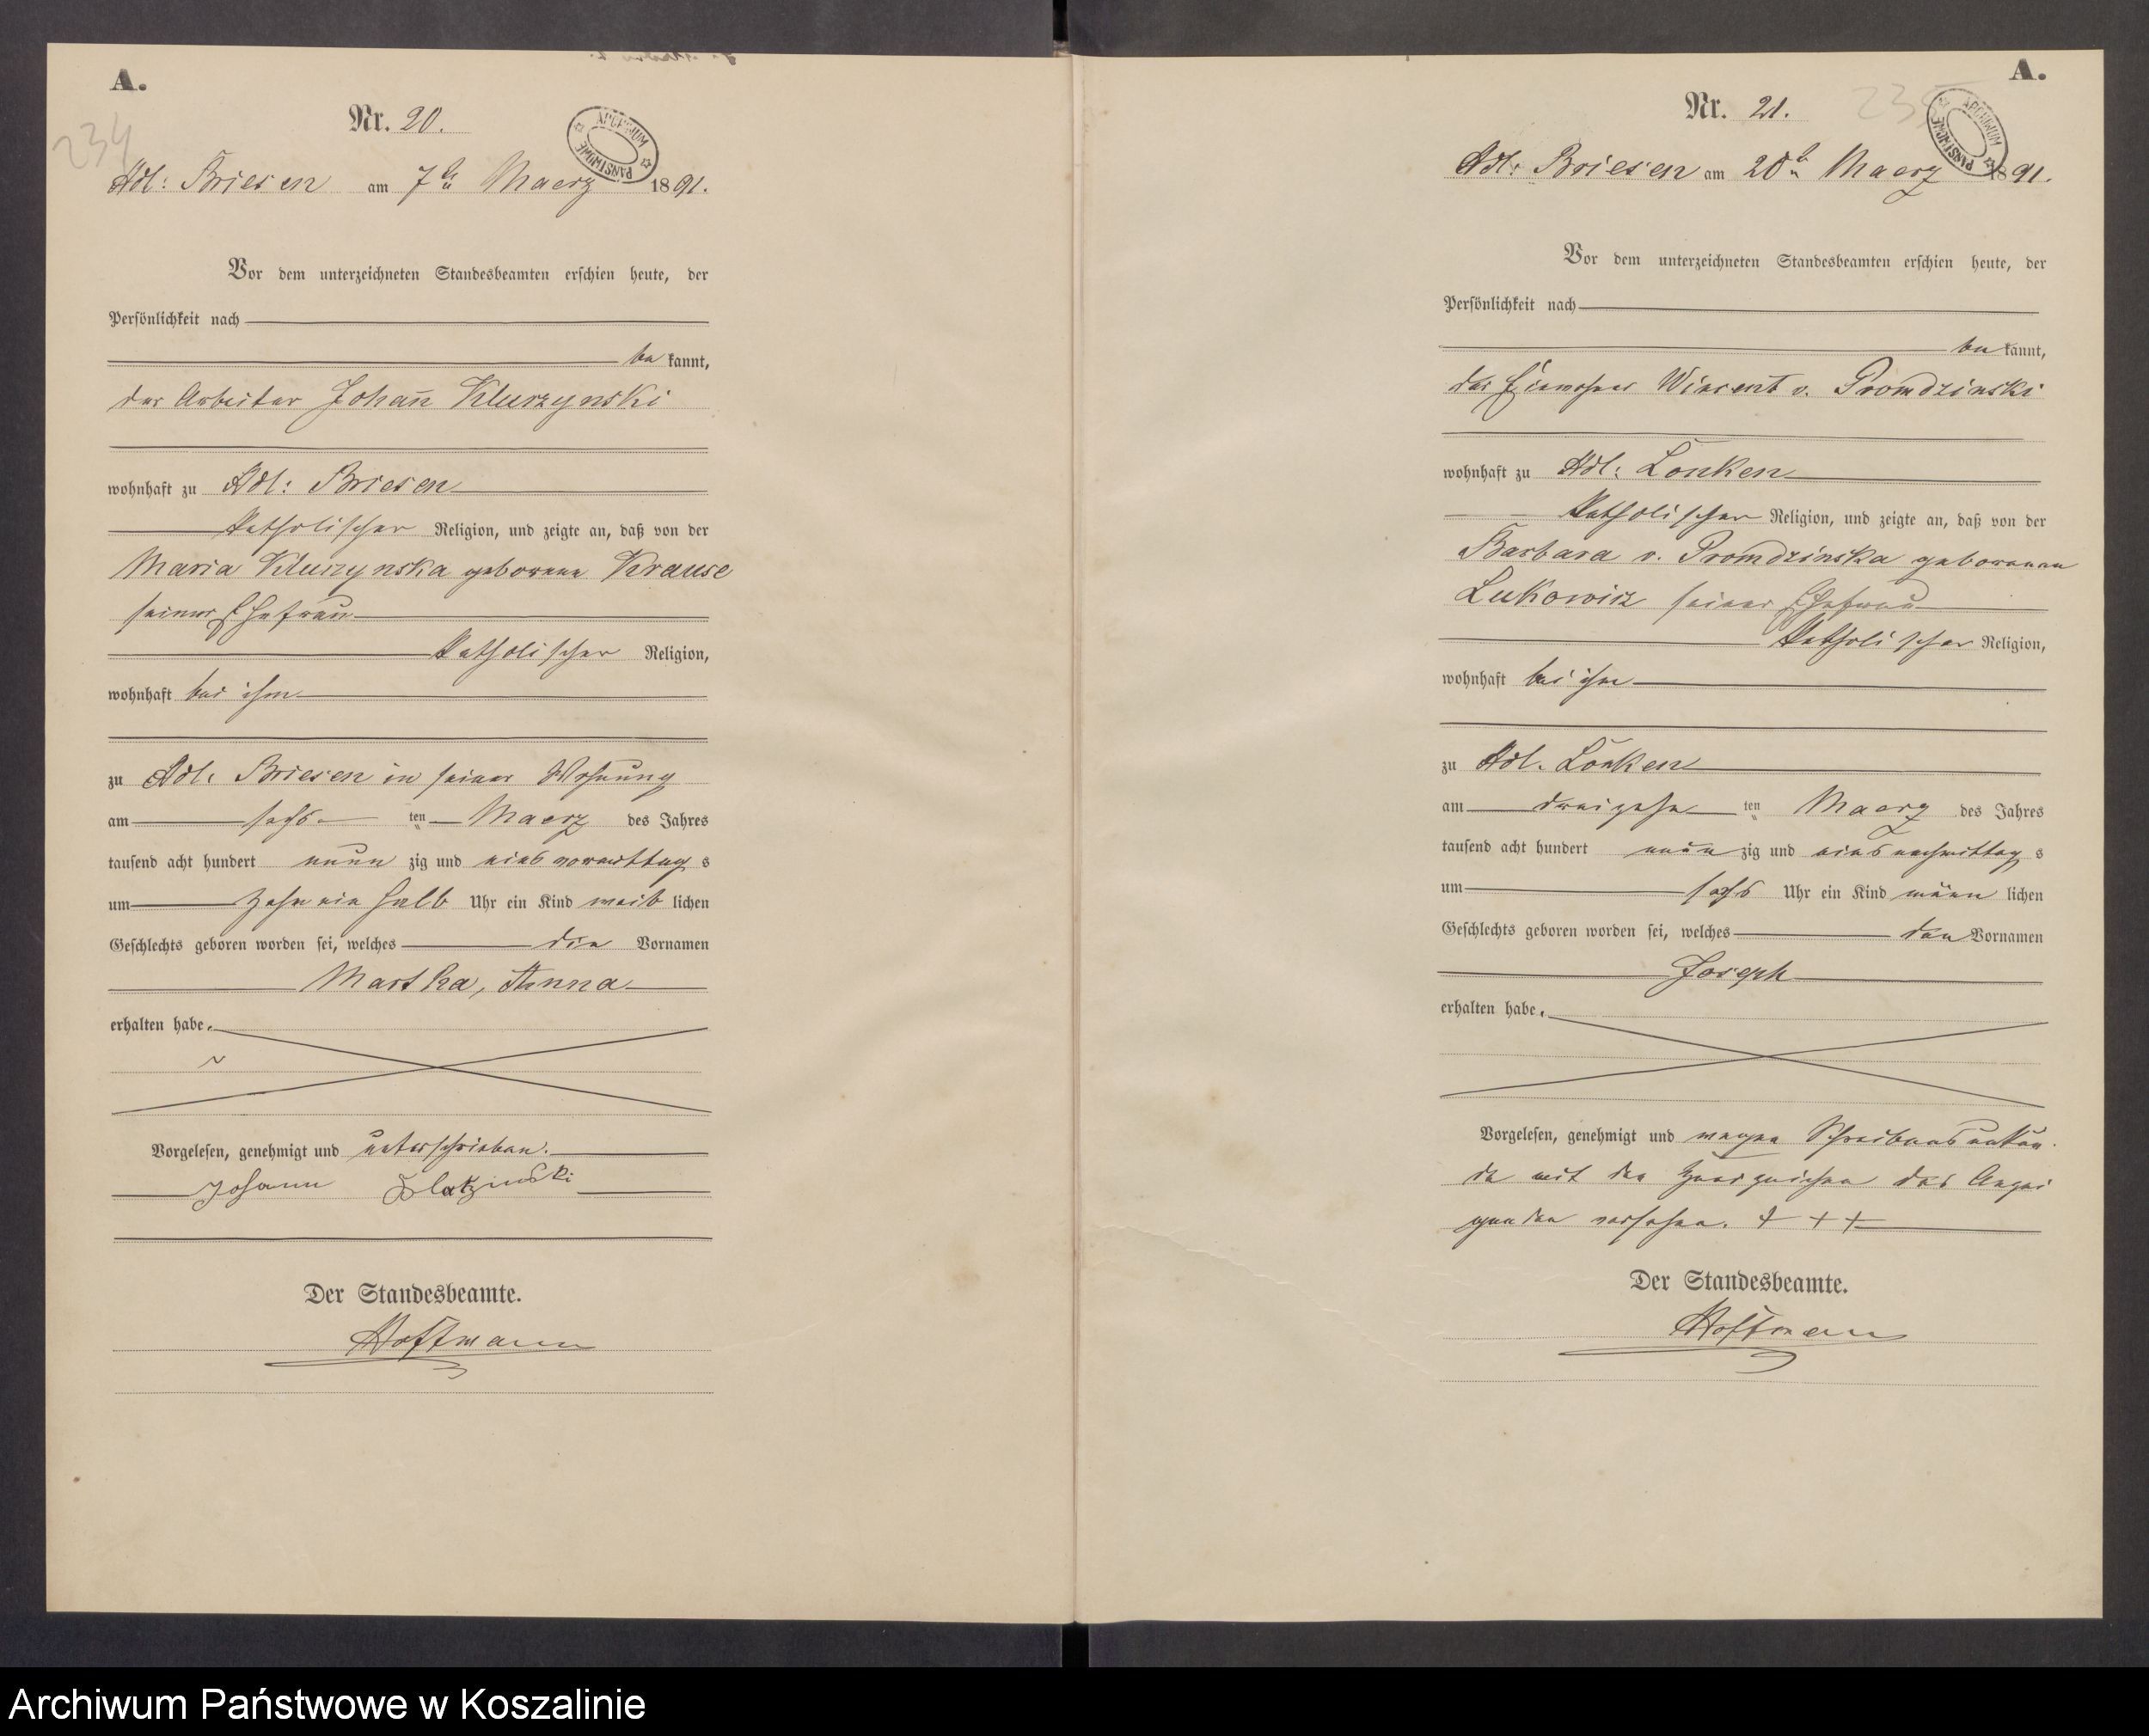 A.
Nr. 20.
234
ARCHIWUM PAŃSTWOWE
Adl: Briesen am 7ten Maerz 1891.
Vor dem unterzeichneten Standesbeamten erschien heute, der
Persönlichkeit nach
bekannt,
der Arbeiter Johann̄ Klurzynski
wohnhaft zu Adl: Briesen
katholischer Religion, und zeigte an, daß von der
Maria Klurzynska geborene Krause
seiner Ehefrau
katholischer Religion,
wohnhaft bei ihm
zu Adl. Briesen in seiner Wohnung
am sechs ten Maerz des Jahres
tausend acht hundert neun zig und eins vormittag s
um zehn ein halb Uhr ein Kind weib lichen
Geschlechts geboren worden sei, welches die Vornamen
Martha, Anna
erhalten habe.
Vorgelesen, genehmigt und unterschrieben.
Johann
Der Standesbeamte.
Hoffmann
A.
Nr. 21.
235
ARCHIWUM PAŃSTWOWE
Adl: Briesen am 20ten Maerz 1891.
Vor dem unterzeichneten Standesbeamten erschien heute, der
Persönlichkeit nach
bekannt,
der Einwohner Wincent v. Promdzinski
wohnhaft zu Adl: Lonken
katholischer Religion, und zeigte an, daß von der
Barbara v. Promdzinska geborenen
Lukowicz seiner Ehefrau
katholischer Religion,
wohnhaft bei ihm
zu Adl. Lonken
am dreizehn ten Maerz des Jahres
tausend acht hundert neun zig und eins nachmittag s
um sechs Uhr ein Kind männ lichen
Geschlechts geboren worden sei, welches den Vornamen
Joseph
erhalten habe.
Vorgelesen, genehmigt und wegen Schreibensunkun
de mit den Kreuzzeichen des Anzei
genden versehen. + + +
Der Standesbeamte.
Hoffmann
Archiwum Państwowe w Koszalinie